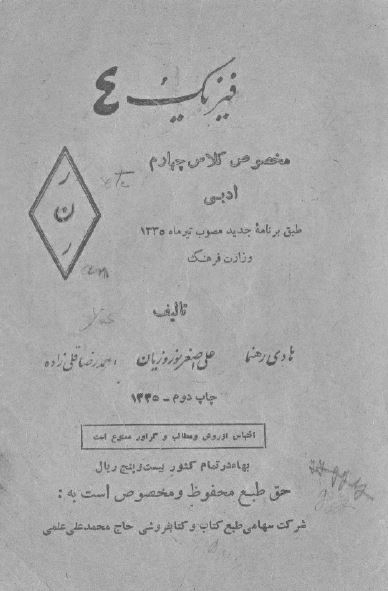 فیزیک ٤
مخصوص کلاس چهارم
ادبی
ر
ن
ر
طبق برنامهٔ جدید مصوب تیرماه ۱۳۳۵
وزارت فرهنگ
تالیف
هادی رهنما علی اصغر نوروزیان احمد رضا قلی زاده
چاپ دوم - ۱۳۳۵
اقتباس از روش و مطالب و گراور ممنوع است
بها در تمام کشور بیست و پنج ریال
حق طبع محفوظ و مخصوص است به :
شرکت سهامی طبع کتاب و کتابفروشی حاج محمد علی علمی